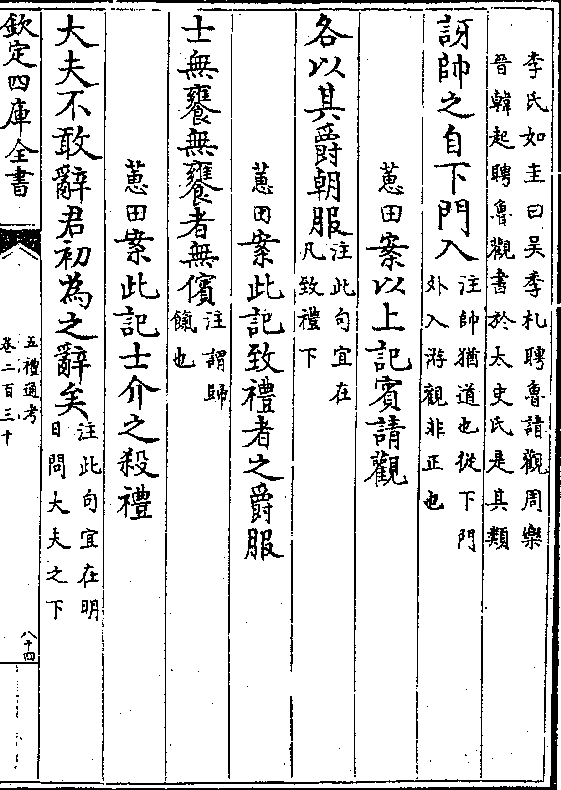 李氏如圭曰吳季札聘魯請觀周樂
晉韓起聘魯觀書於太史氏是其類
訝帥之自下門入
注帥猶道也從下門
外入游觀非正也
蕙田案以上記賓請觀
各以其爵朝服
注此句宜在
凡致禮下
蕙田案此記致禮者之爵服
士無饔無饔者無儐
注謂歸
餼也
蕙田案此記士介之殺禮
大夫不敢辭君初為之辭矣
注此句宜在明
日問大夫之下
欽定四庫全書
五禮通考
卷二百三十
八十四